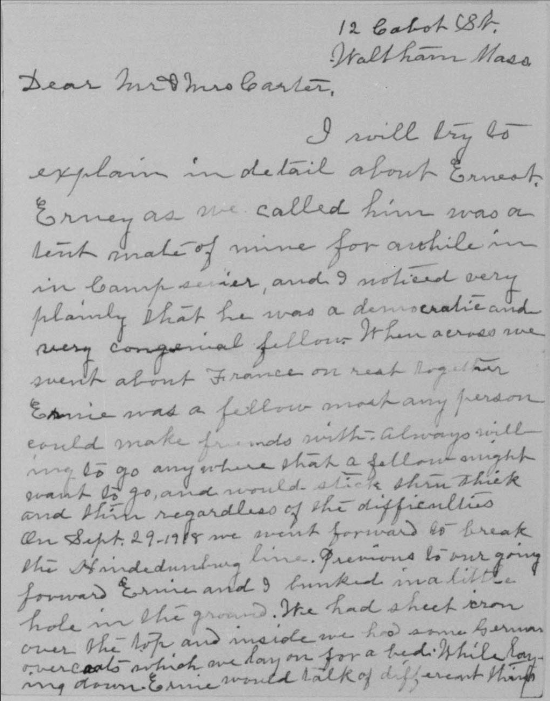 12 Cabot St.
Waltham Mass
Dear Mr & Mrs Carter,
I will try to
explain in detail about Ernest.
Erney as we called him was a
tent mate of mine for awhile in
in Camp sevier, and I noticed very
plainly that he was a democratic and
very congenial fellow. When across we
went about France on rest together
Ernie was a fellow most any person
could make friends with. Always will-
ing to go anywhere that a fellow might
want to go, and would stick thru thick
and thin regardless of the difficulties
On Sept. 29-1918 we went forward to break
the Hindedunburg line. Previous to our going
forward Ernie and I bunked in a little
hole in the ground. We had sheet iron
over the top and inside we had some German
overcoats which we lay on for a bed. While lay-
ing down Ernie would talk of different things